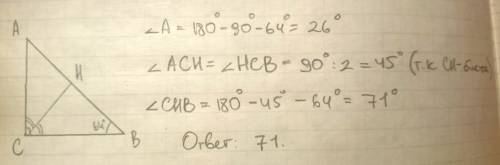 A
H
C
64°
B
∠A = 180° - 90° - 64° = 26°
∠ACH = ∠HCB = 90° : 2 = 45° (т.к CH-бисс)
∠CHB = 180° - 45° - 64° = 71°
Ответ: 71.